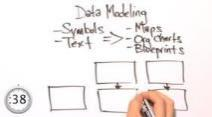 Data Modeling
-Symbols => -Maps
-Text -Org Charts
-Blueprints
:38